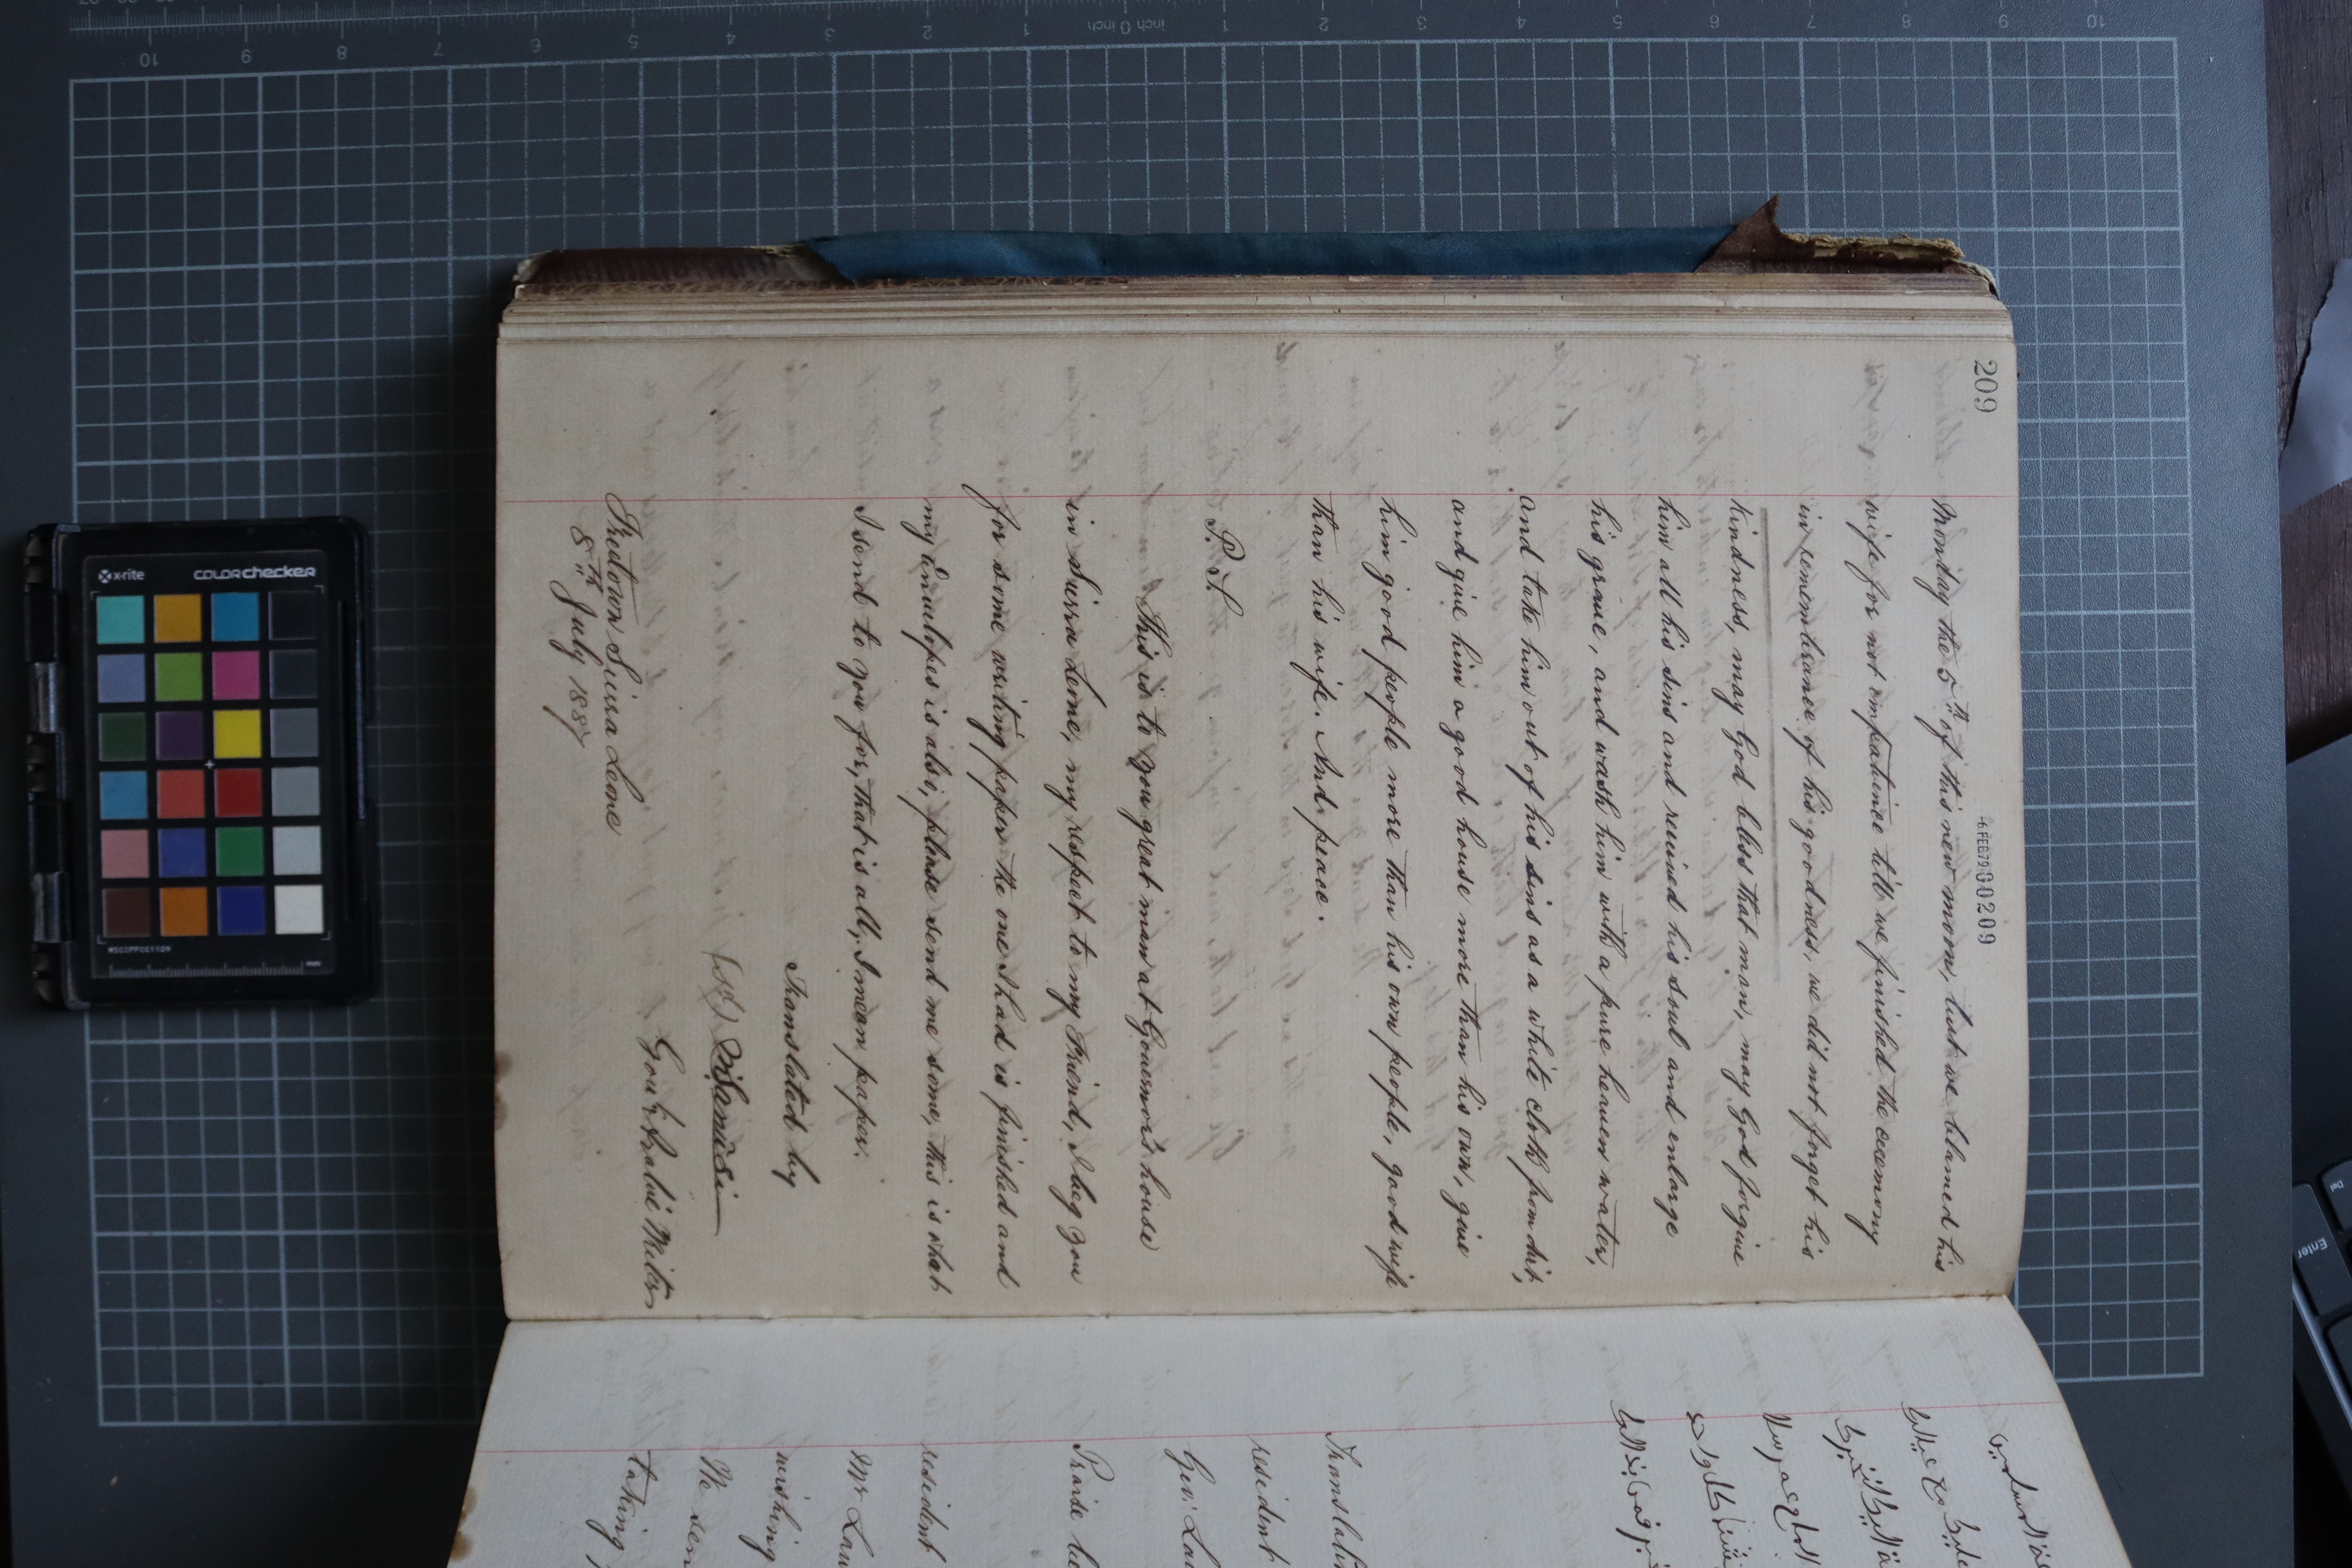 209
6 FEB 79 00209
Monday the 5th of this new moon, but we blamed his
wife for not impatience till we finished the ceremony
in remembrance of his goodness, we did not forget his
kindness, may God bless that man, may God forgive
him all his sins and received his soul and enlarge
his grave, and wash him with a pure heaven water,
and take him out of his sins as a white cloth from dirt,
and give him a good house more than his own, give
him good people more than his own people, good wife
than his wife. And peace.
P.S.
This is to you great man at Governor's house
in Sierra Leone, my respect to my Friend, I beg you
for some writing paper the one I had is finished and
my envulopes is also, please send me some, this is what
I send to you for, that is all, I mean paper.
Translated by
(sd)
Govt Arabic Writer
Freetown Sierra Leone
8th July 1887
Translati
resident
Gov: La
Praise be
resident
Mr Law
wishing
We sen
taking
x-rite
colorchecker
inch 0 inch
Enter
Del